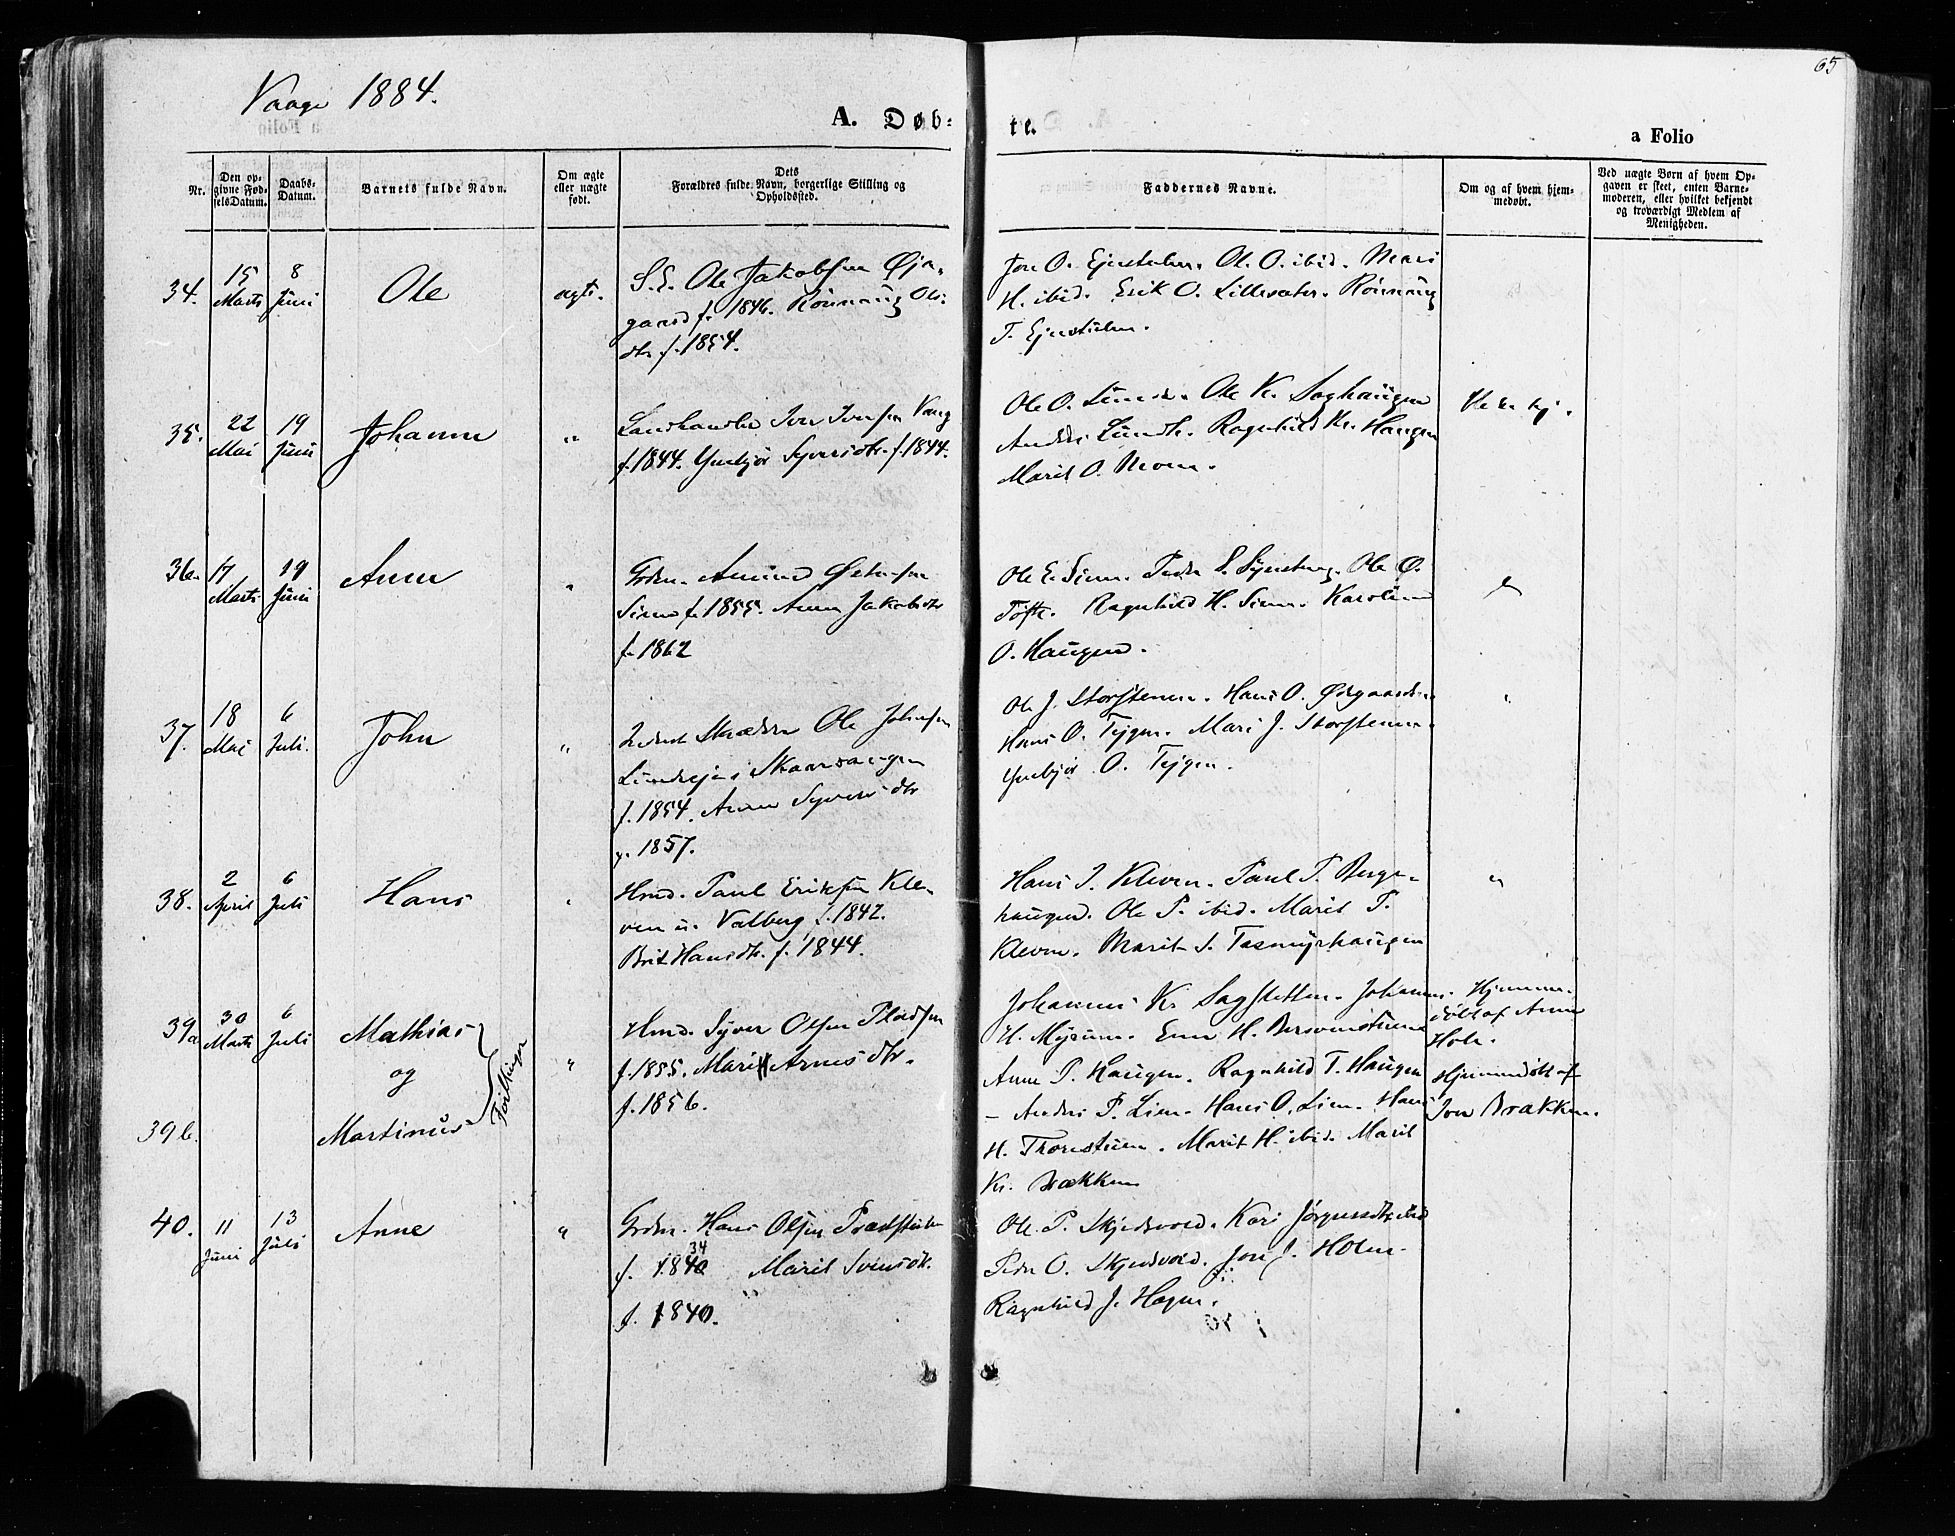 65
Vaage 1884.
A. Døb-
te.
a Folio
Nr.
Den op-
givne Fød-
selsDatum.
Daabs-
Datum.
Barnets fulde Navn.
Om ægte
eller uægte
født.
Dets
Forældres fulde Navn, borgerlige Stilling og
Opholdssted.
Faddernes Navne.
Om og af hvem hjem-
medøbt.
Ved uægte Børn af hvem Op-
gaven er skeet, enten Barne-
moderen, eller hvilket bekjendt
og troværdigt Medlem af
Menigheden.
34.
15
Marts
8
Juni
Ole
ægte.
S. E. Ole Jakobsen Øja-
gaard f. 1846. Rönnaug Ols-
dtr f. 1854.
Jon O. Ejestulen. Ol. O. ibid. Mari
H. ibid. Erik O. Lillesæter. Rönnaug
T. Ejestulen.
35.
22
Mai
19
Juni
Johanne
"
Landhandler Iver Iversen Vang
f. 1844. Ymbjör Syversdtr. f. 1844.
Ole O. Ole K. Soghaugen
Anders Lundh. Ragnhild Kr. Haugen
Marit O. Moen.
36.
17
Marts
19
Juni
Anne
"
Grdm. Amund Østensen
f. 1855. Anne Jakobsdtr
f. 1862
Ole E. Peder S. Ole O.
Tofte. Ragnhild H. Karoline
O. Haugen.
37.
18
Mai
6
Juli.
John
"
Skrædder Ole Johnsen
i Skaarvangen
f. 1854. Anne Syversdtr
f. 1857.
Ole J. Storstenen. Hans O. Ødegaarden
Hans O. Tejgen. Mari J. Storstenen.
Ymbjör O. Tejgen.
"
38.
2
April
6
Juli
Hans
"
Hmd. Paul Eriksen Kle-
ven u. Valberg f. 1842.
Brit Hansdtr. f. 1844.
Hans J. Kleven. Paul T. Berge-
haugen. Ole P. ibid. Marit P.
Kleven. Marit S. Tasmyrhaugen
"
39a
30
Marts
6
Juli
Mathias
og
39b.
Martinus
Tvillinger
"
Hmd. Syver Olsen Pladsen
f. 1855. Marit Arnesdtr.
f. 1856.
Johannes Kr. Sagstetten. Johannes
H. H.
Anne P. Haugen. Ragnhild T. Haugen
- Anders P. Lien. Hans O. Lien. Hans
H. Thorestuen. Marit H. ibid. Marit
Kr. Brækken
Hjemme-
döbt af Anne
Hole.
Hjemmedöbt af
Jon Brækken.
40.
11
Juni
13
Juli
Anne
"
Grdm. Hans Olsen
34
f. 1840 Marit Svensdtr.
f. 1840.
Ole P. Skjedsvold. Kari Jörgensdtr ibid
Peder O. Skjedsvold. Jon J. Holen.
Ragnhild J. Hagen.